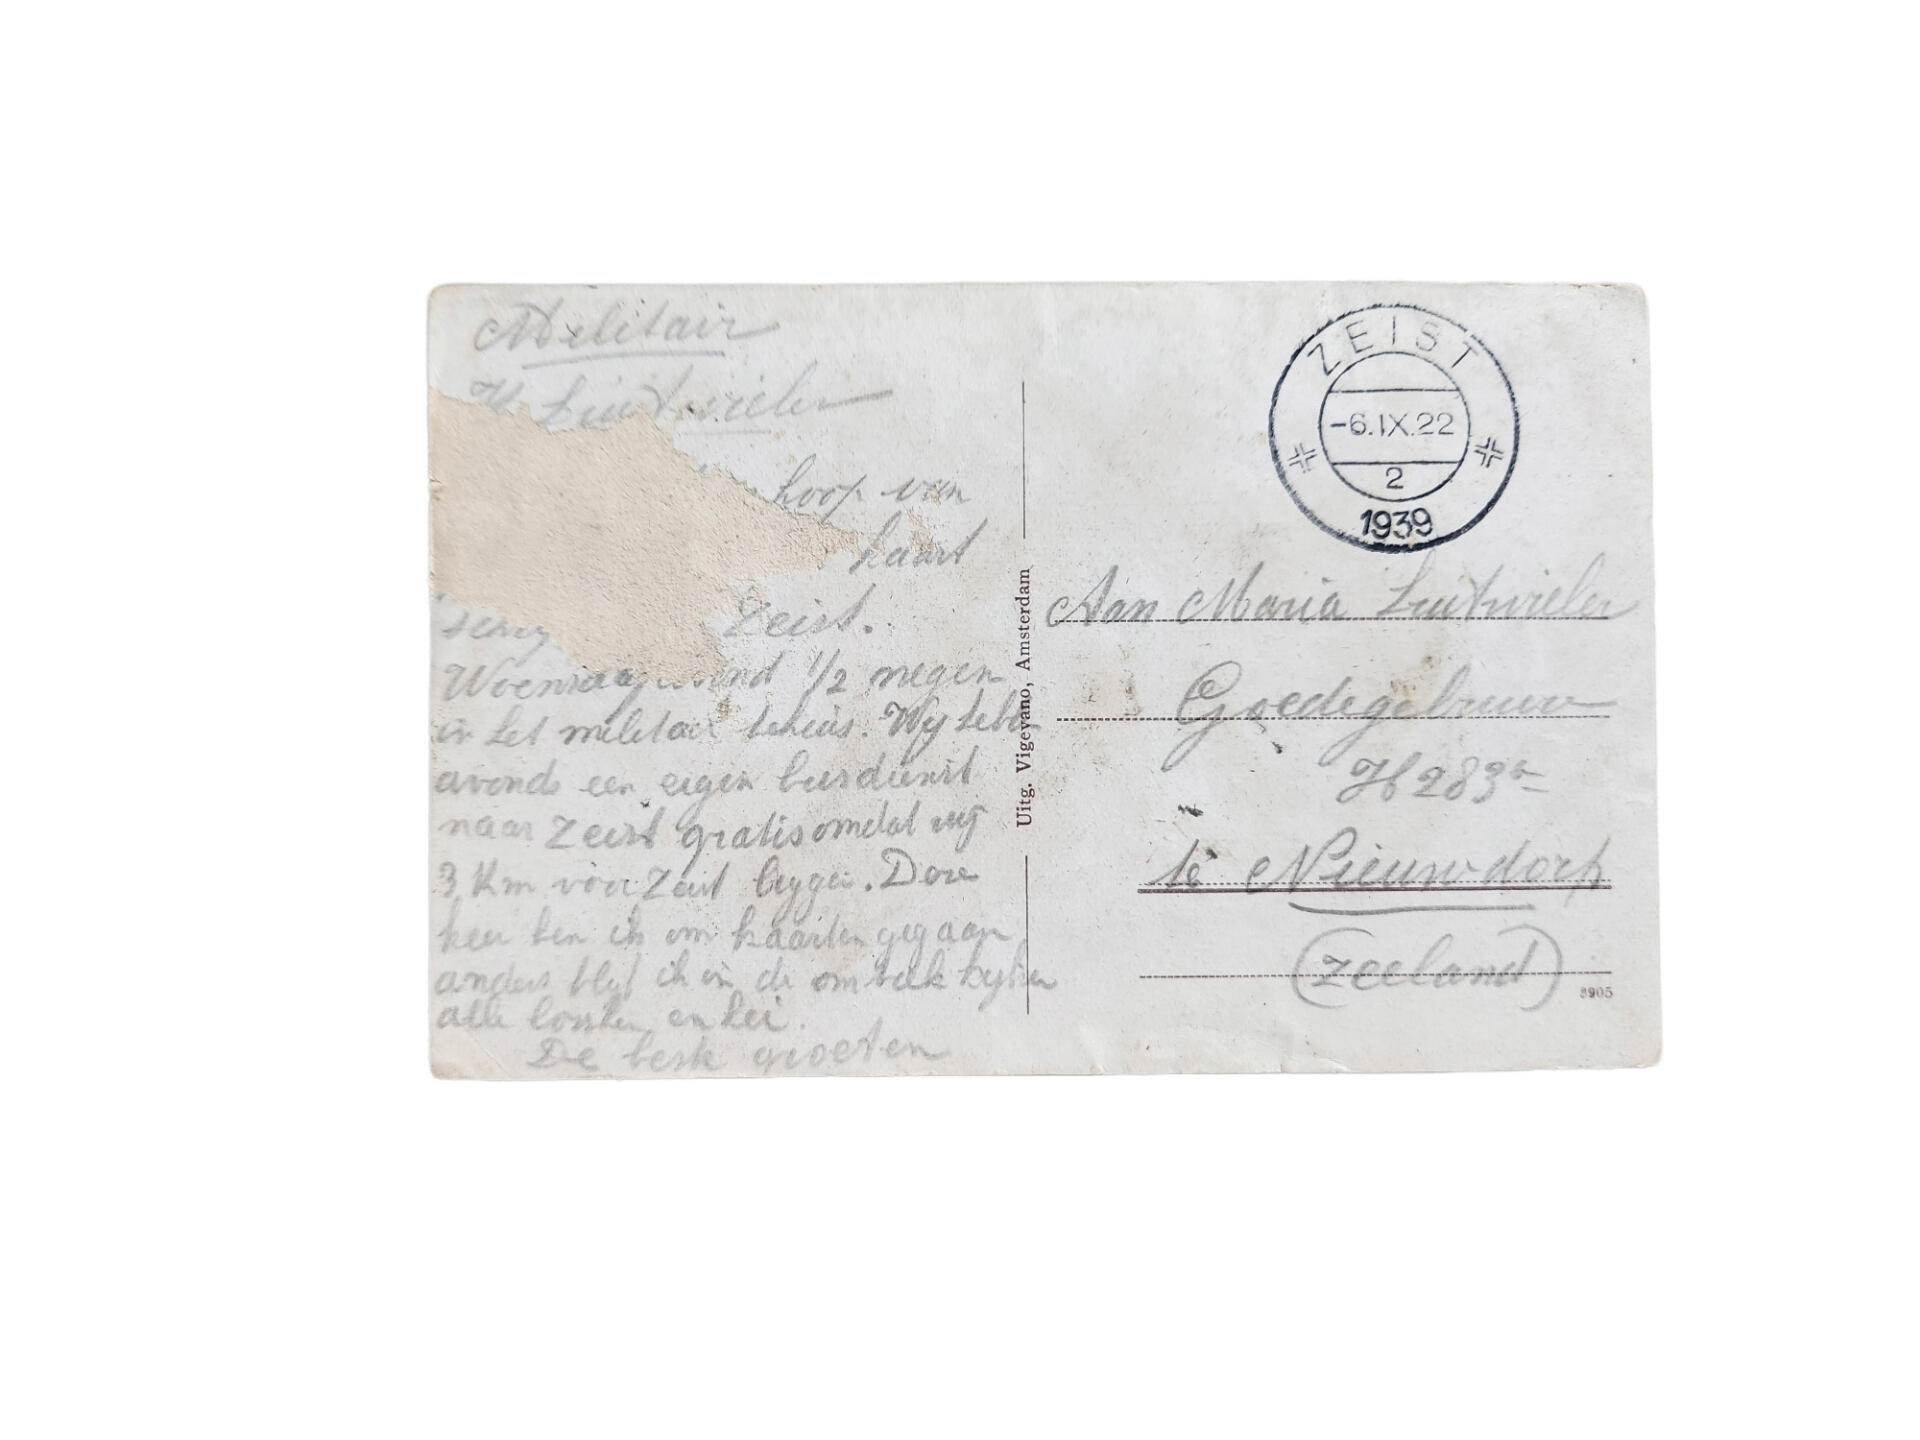 Militair
Luitwieler
hoop van
kaart
Zeist.
Woensdagavond 1/2 negen
in het militair tehuis. Wij hebb
avonds een eigen busdienst
naar Zeist gratis omdat wij
3 Km voor Zeist liggen. Deze
keer ben ik om kaarten gegaan
anders blijf ik in de omtrek kijken
alle bossen en hei.
De beste groeten
Uitg. Vigevano, Amsterdam
ZEIST
-6.IX.22
2
1939
Aan Maria Luitwieler
Goedegebuure
H 283
te Nieuwdorp
(Zeeland)
8905